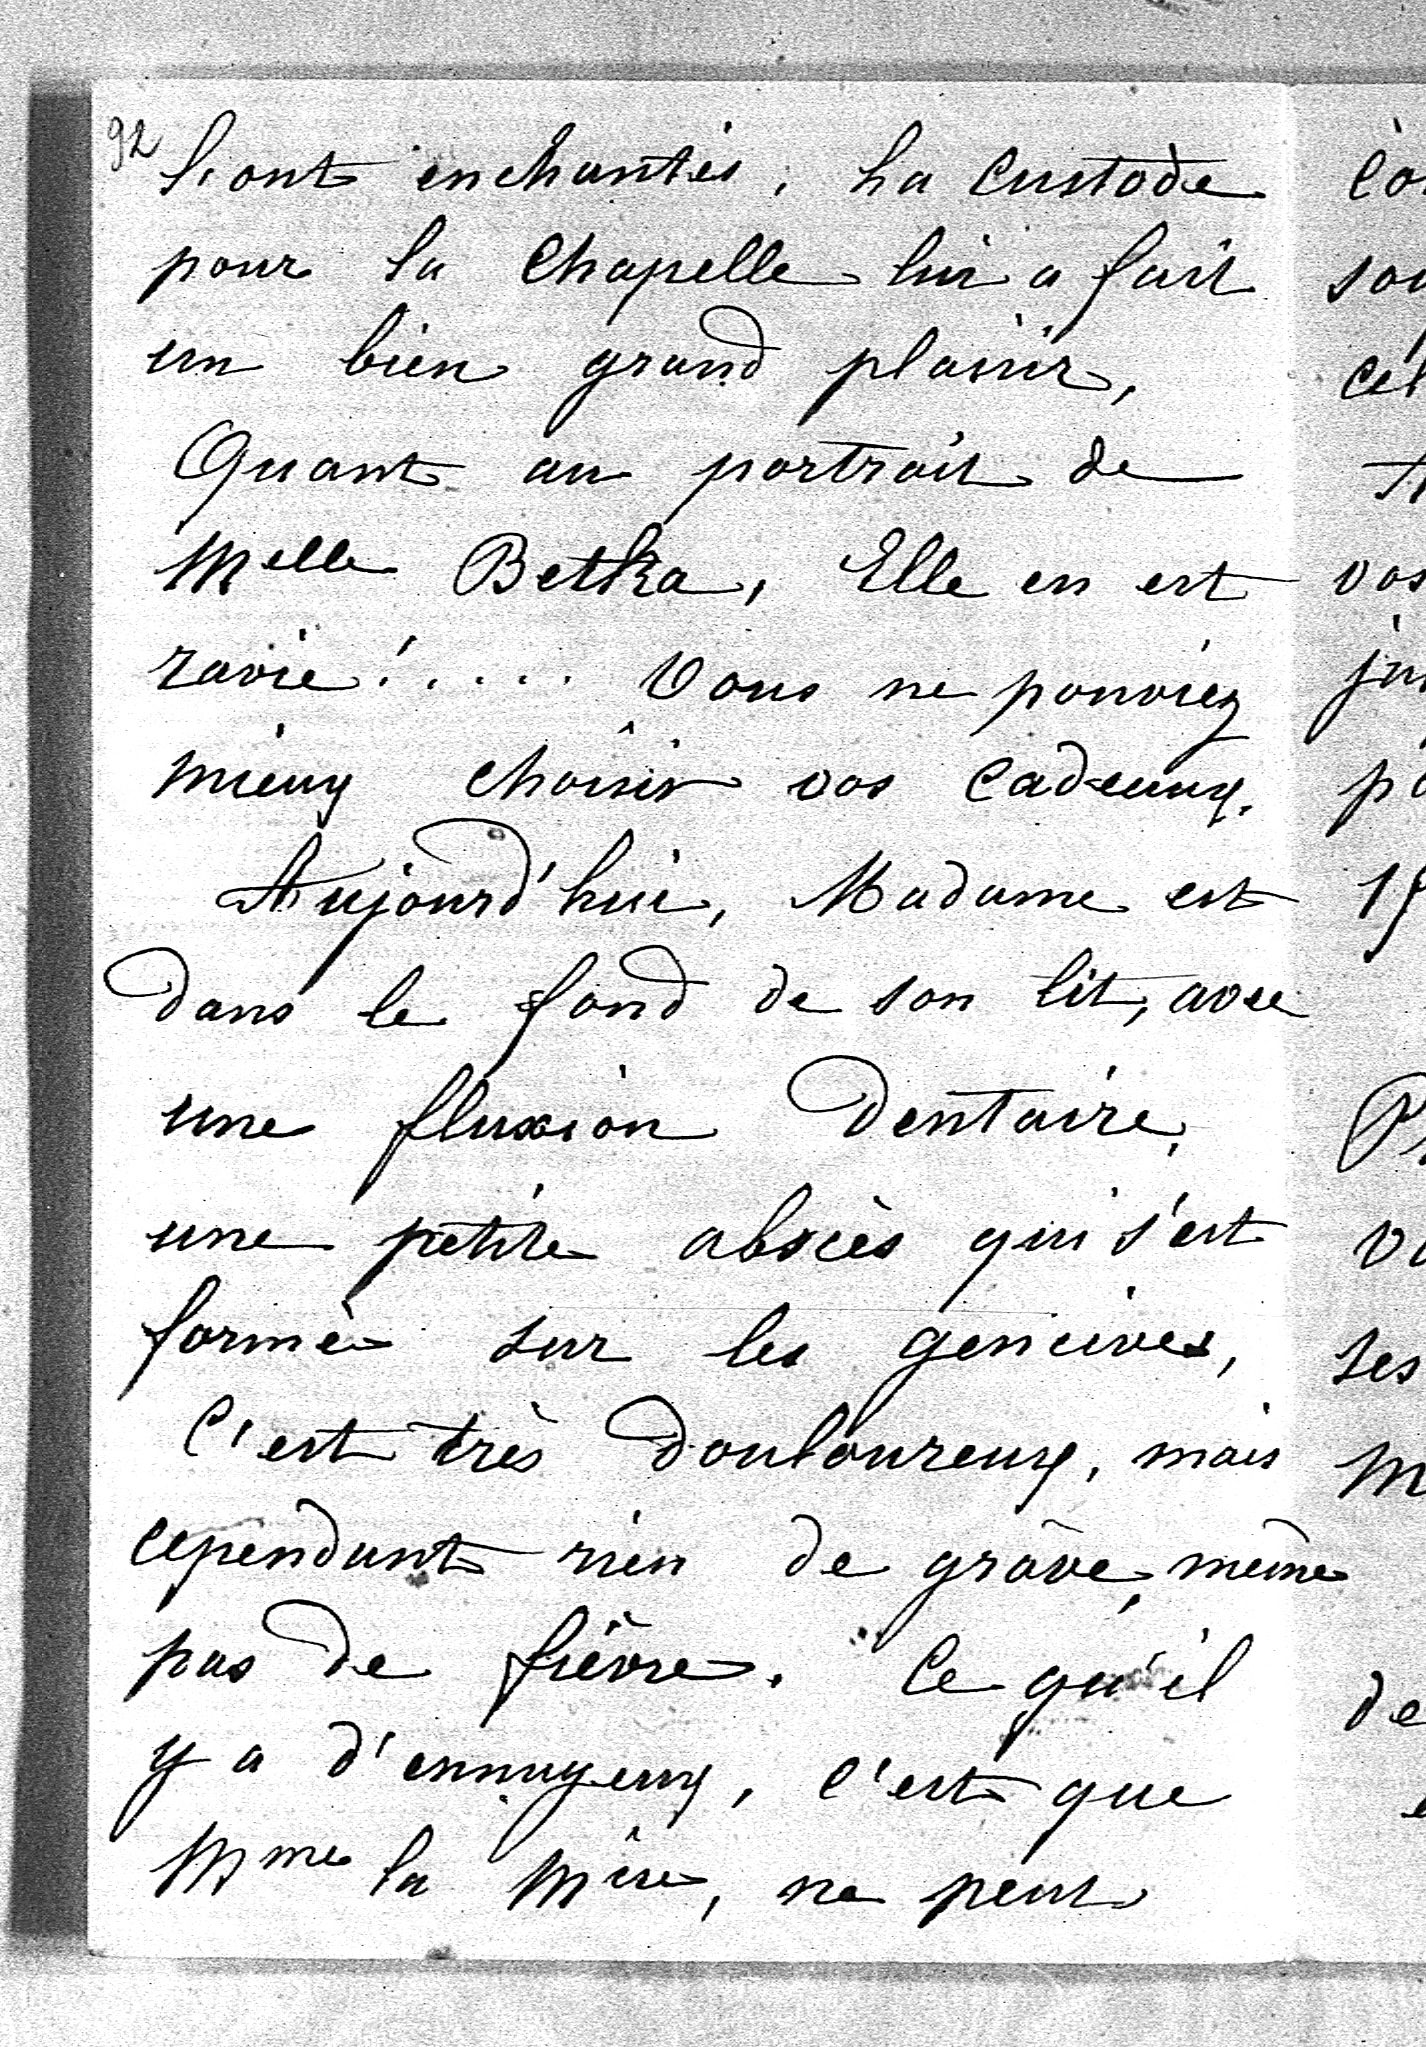 92
l'ont enchantés. La Custode
pour la Chapelle lui a fait
un bien grand plaisir,
Quant au portrait de
Melle Betka, Elle en est
ravie!.... Vous ne pouviez
mieux choisir vos cadeaux.
Aujourd'hui, Madame est
dans le fond de son lit, avec
une fluxion dentaire,
une petite abscès qui s'est
formée sur les gencives,
C'est très douloureux, mais
cependant rien de grave, même
pas de fièvre. Ce qu'il
y a d'ennuyeux, c'est que
Mme la Mère, ne peut